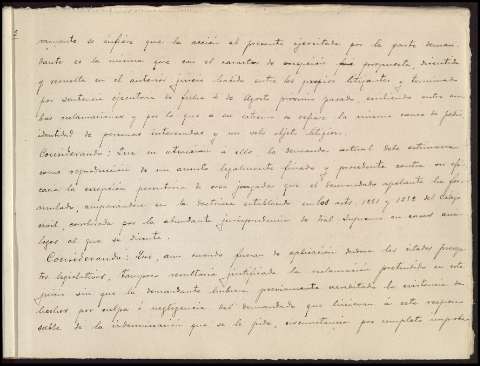 2
mente se infiere que la acción al presente ejercitada por la parte deman-
dante es la misma que con el caracter de excepción fue propuesta, discutida
y resuelta en el anterior juicio habido entre los propios litigantes, y terminado
por sentencia ejecutoria de fecha 4 de Agosto proximo pasado, existiendo entre am-
bas reclamaciones y por lo que a su esencia se refiere la misma causa de pedir,
identidad de personas interesadas y un solo objeto litigioso.
Considerando: Que en atencion a ello la demanda actual debe estimarse
como reproduccion de un asunto legalmente finado y procedente contra su efi-
cacia la excepción perentoria de cosa juzgada que el demandado apelante ha for-
mulado, amparandose en la doctrina establecida en los arts. 1251 y 1252 del Codigo
civil, corroborada por la abundante jurisprudencia de tral Supremo en casos aná-
logos al que se discute.
Considerando: Que, aun cuando fueran de aplicación dudosa los citados precep-
tos legislativos, tampoco resultaria justificada la reclamación pretendida en este
juicio sin que la demandante hubiera previamente acreditado la existencia de
hechos por culpa ó negligencia del demandado que hicieran á este respon-
sable de la indemnizacion que se le pide, circunstancia por completo improba-